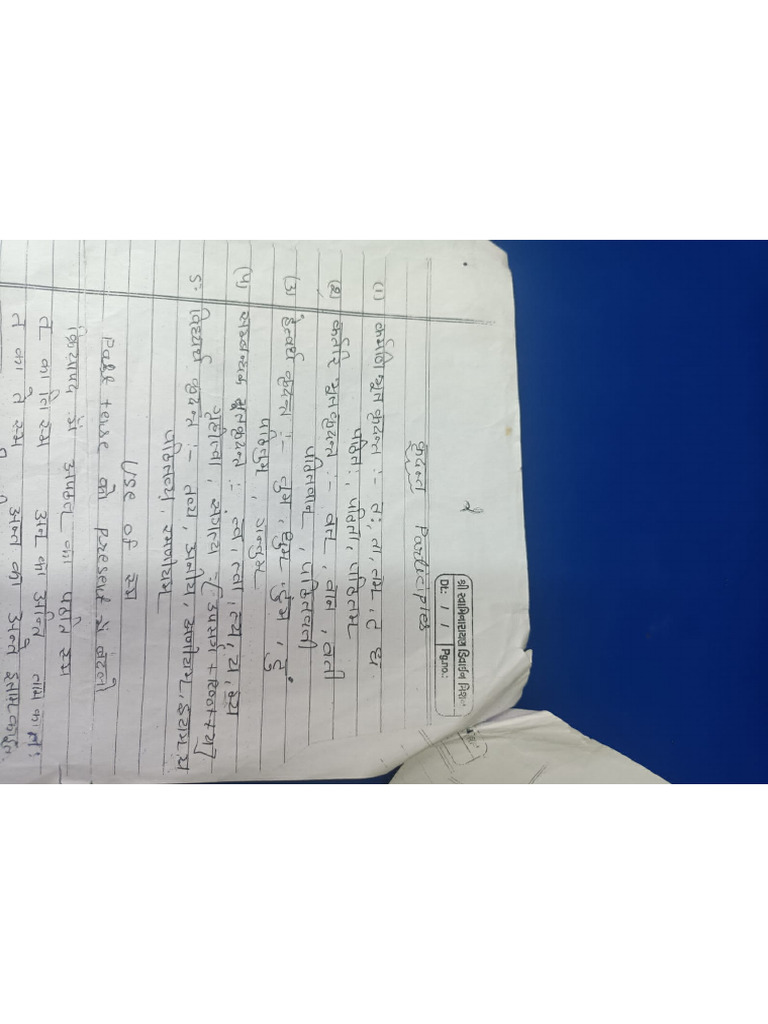 श्री स्वामिनारायण डिवाईन मिशन
Dt.: / / Pg.no.:
2
कृदन्त Participles
(1) कर्मणि भूत कृदन्त :- तः, ता, तम्, ट
पठितः, पठिता, पठितम्
(2) कर्तरि भूतकृदन्त :- वत्, वान्, वती
पठितवान्, पठितवती
(3) हेत्वर्थ कृदन्त :- तुम्, टुम्, ढुम्, टुं
पठितुम्, गन्तुम्
(4) सम्बन्धक भूतकृदन्त :- त्व, त्वा, त्य, य, इय
गृहीत्वा, संगत्य - [उपसर्ग + Root + य]
5. विध्यर्थ कृदन्त :- तव्य, अनीय, अणीयम्,
पठितव्य, रमणीयम्
Use of स्म
Past tense को present में बदलो
क्रियापद में अपठत् का पठति स्म
त् का ति स्म अन् का अन्ति
त का ते स्म अन्त का अन्ते